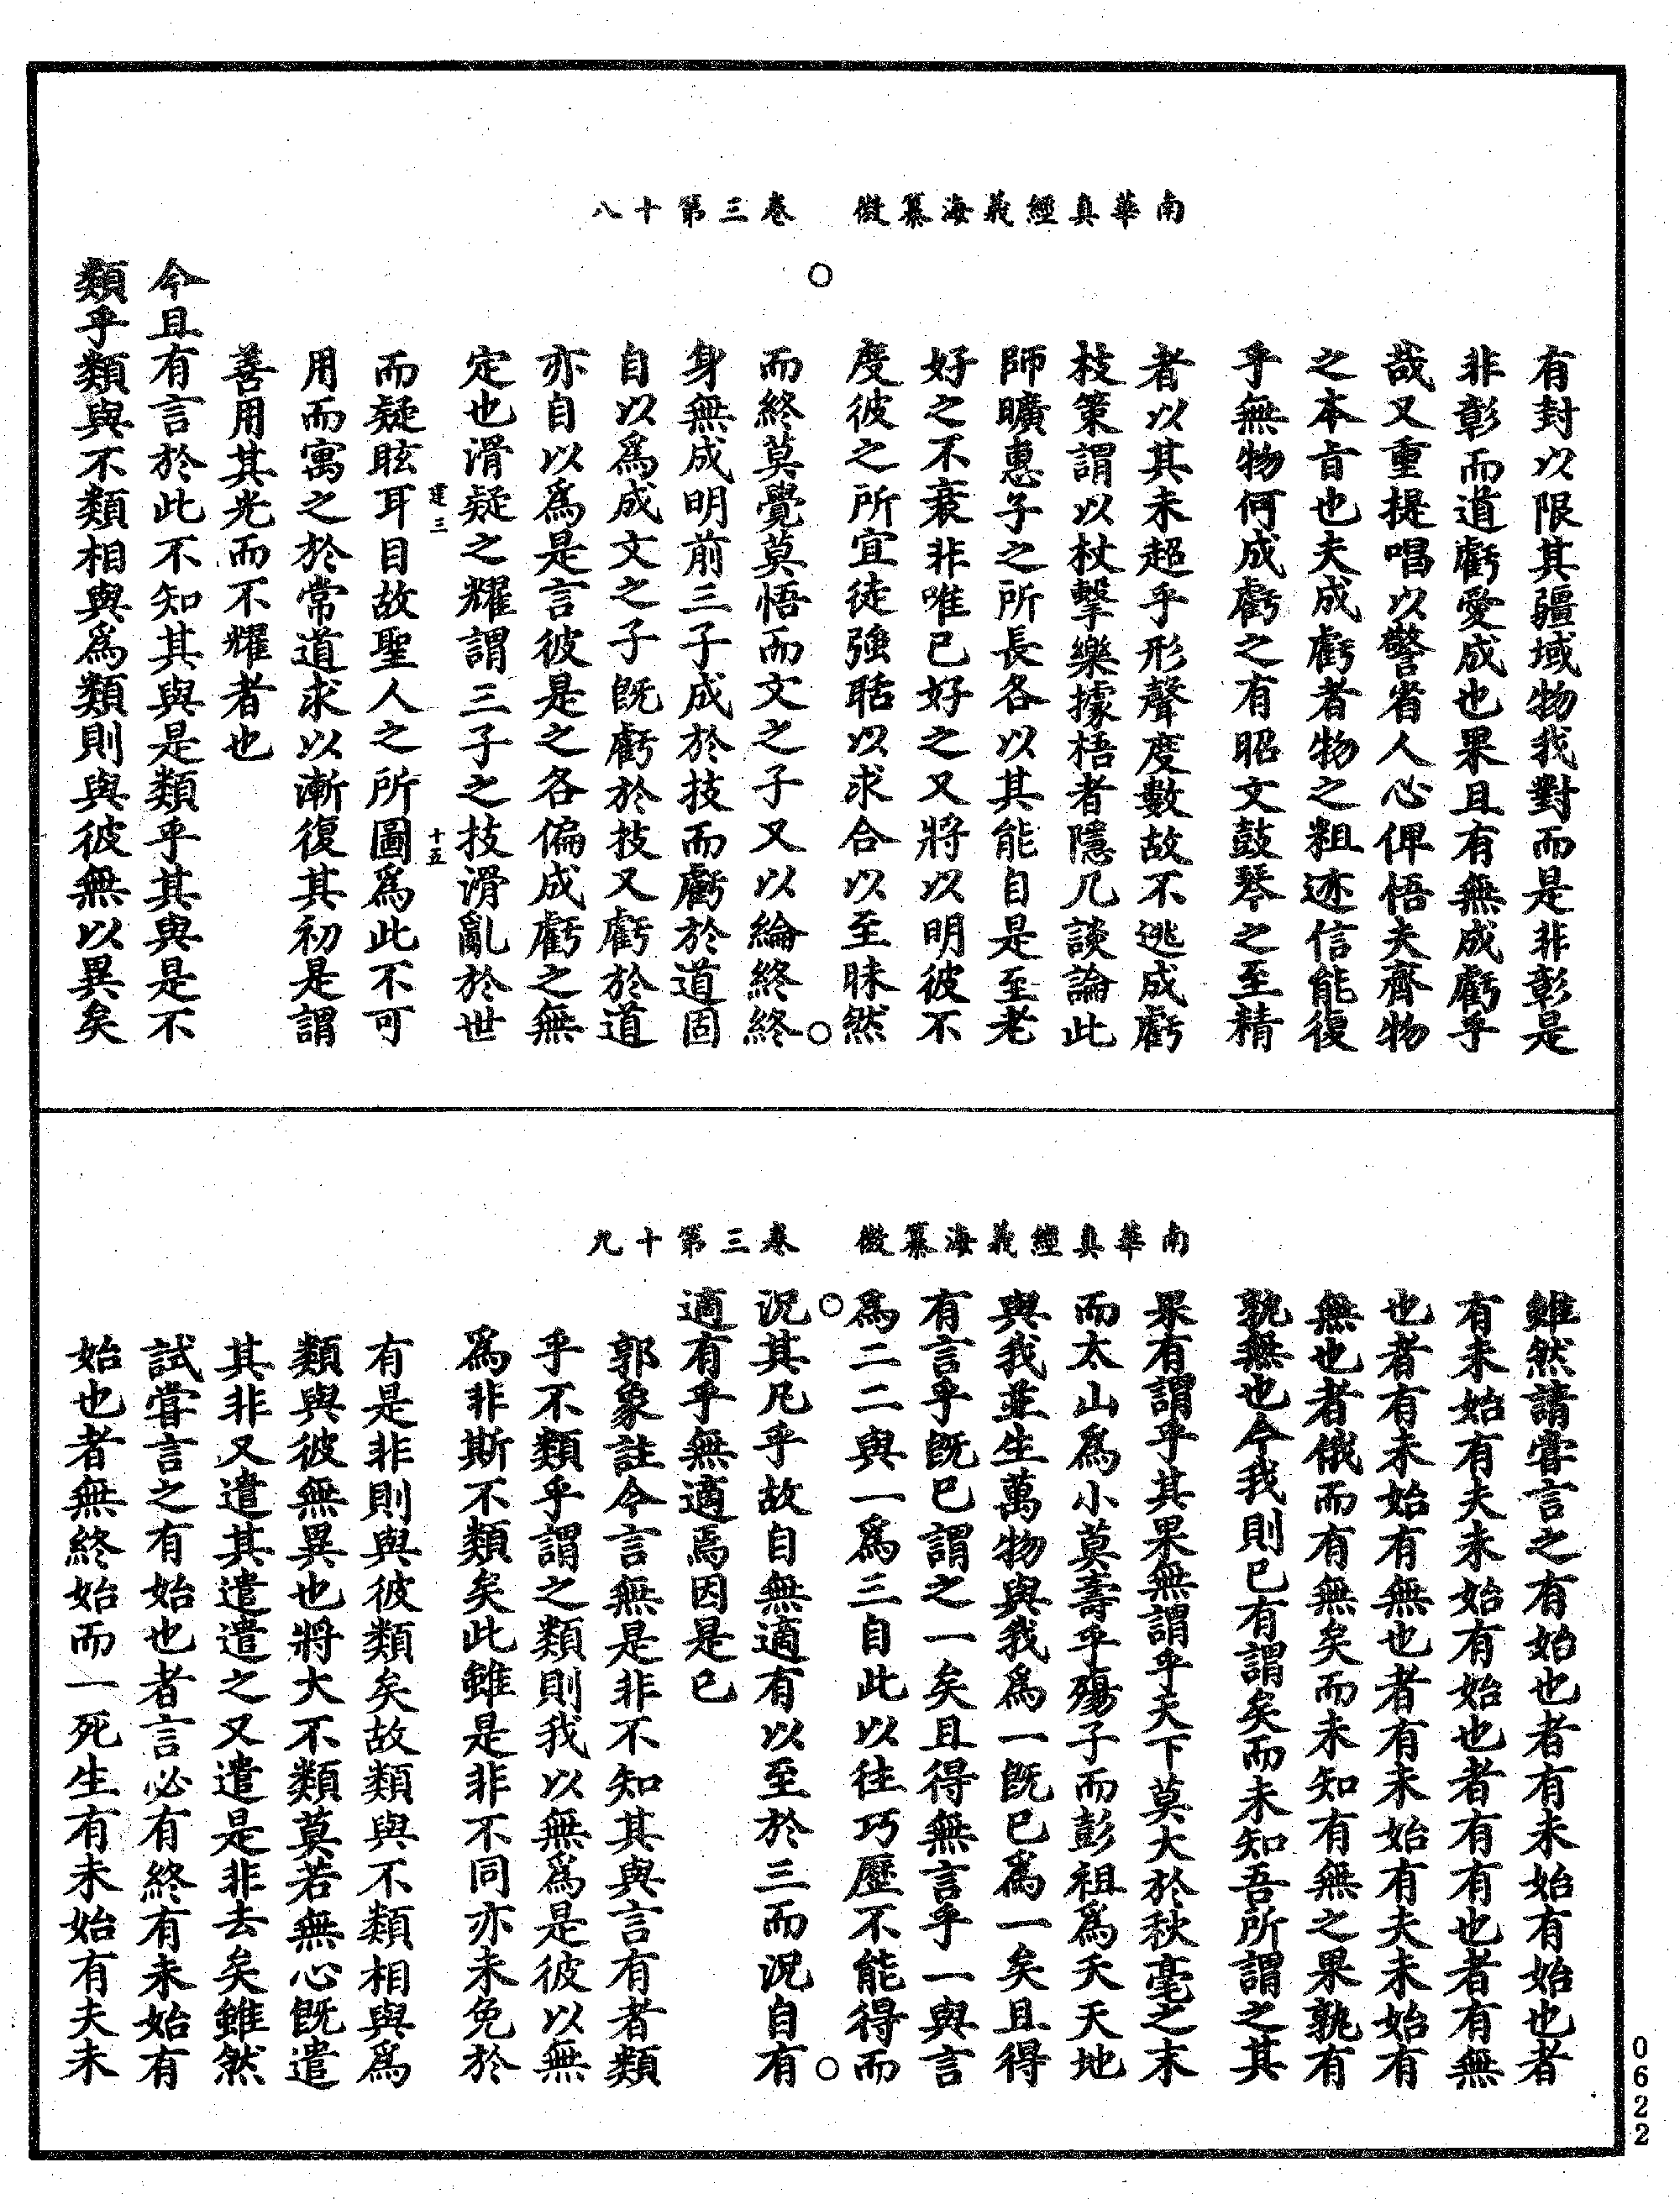 南華真經義海纂微　卷三第十八
有封以限其疆域物我對而是非彰是
非彰而道虧愛成也果且有無成虧乎
哉又重提唱以警省人心俾悟夫齊物
之本旨也夫成虧者物之粗迹信能復
乎無物何成虧之有昭文鼓琴之至精
者以其未超乎形聲度數故不逃成虧
枝策謂以杖擊樂據梧者隱几談論此
師曠惠子之所長各以其能自是至老
好之不衰非唯已好之又將以明彼不
度彼之所宜徒強聒以求合以至昧然
而終莫覺莫悟而文之子又以綸終終
身無成明前三子成於技而虧於道固
自以為成文之子既虧於技又虧於道
亦自以為是言彼是之各偏成虧之無
定也滑疑之耀謂三子之技滑亂於世
而疑眩耳目故聖人之所圖為此不可
建三　十五
用而寓之於常道求以漸復其初是謂
善用其光而不耀者也
今且有言於此不知其與是類乎其與是不
類乎類與不類相與為類則與彼無以異矣
南華真經義海纂微　卷三第十九
雖然請嘗言之有始也者有未始有始也者
有未始有夫未始有始也者有有也者有無
也者有未始有無也者有未始有夫未始有
無也者俄而有無矣而未知有無之果孰有
孰無也今我則已有謂矣而未知吾所謂之其
果有謂乎其果無謂乎天下莫大於秋毫之末
而太山為小莫壽乎殤子而彭祖為夭天地
與我並生萬物與我為一既已為一矣且得
有言乎既已謂之一矣且得無言乎一與言
為二二與一為三自此以往巧歷不能得而
況其凡乎故自無適有以至於三而況自有
適有乎無適焉因是已
郭象註今言無是非不知其與言有者類
乎不類乎謂之類則我以無為是彼以無
為非斯不類矣此雖是非不同亦未免於
有是非則與彼類矣故類與不類相與為
類與彼無異也將大不類莫若無心既遣
其非又遣其遣遣之又遣是非去矣雖然
試嘗言之有始也者言必有終有未始有
始也者無終始而一死生有未始有夫未
0622